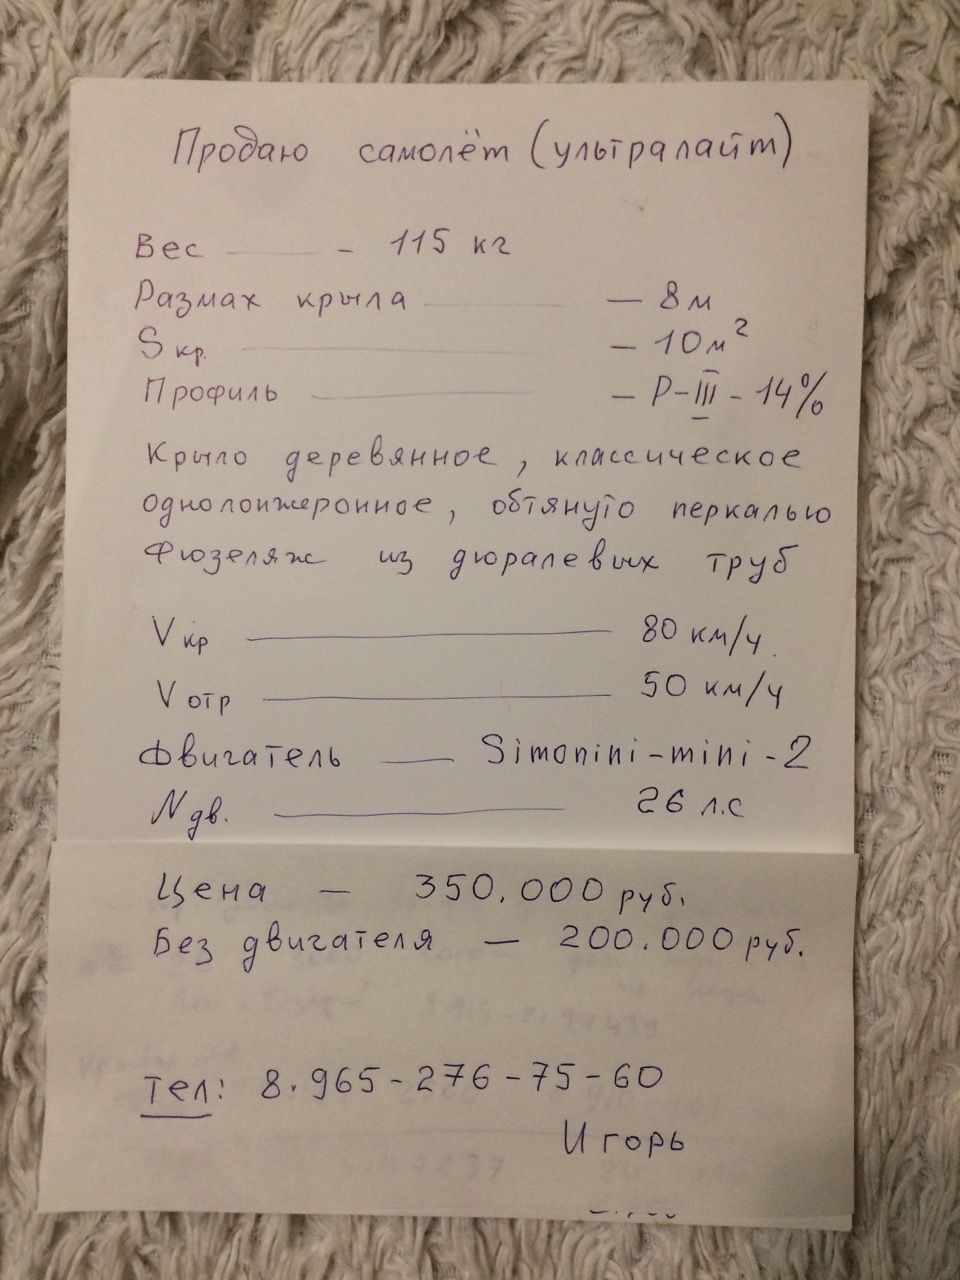 Продаю самолёт (ультралайт)
Вес — 115 кг
Размах крыла — 8м
S кр. — 10м²
Профиль — Р-III-14%
Крыло деревянное, классическое
однолонжеронное, обтянуто перкалью
Фюзеляж из дюралевых труб
V кр — 80 км/ч.
V отр — 50 км/ч
Двигатель — Simonini-mini-2
N дв. — 26 л.с
Цена — 350.000 руб.
Без двигателя — 200.000 руб.
Тел: 8.965-276-75-60
Игорь